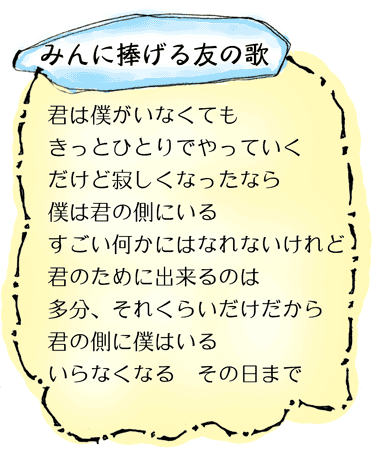 みんに捧げる友の歌
君は僕がいなくても
きっとひとりでやっていく
だけど寂しくなったなら
僕は君の側にいる
すごい何かにはなれないけれど
君のために出来るのは
多分、それくらいだけだから
君の側に僕はいる
いらなくなる　その日まで